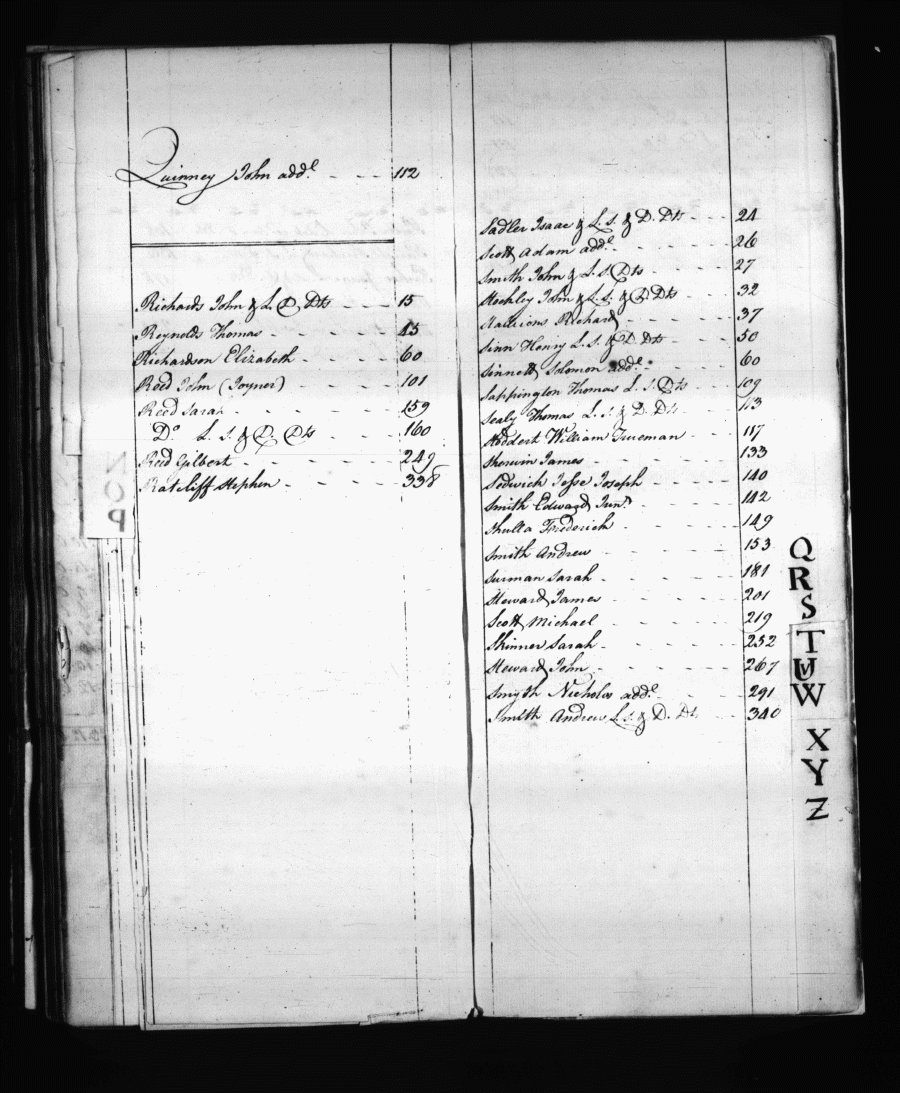 Quinney John addl. - - - 112
Richards John & L. D. Dts - - - 15
Reynolds Thomas - - - - - 45
Richardson Elizabeth - - - - - 60
Reed John (Joyner) - - - - 101
Reed Sarah - - - - - 159
Do. L. S. & D. Dts - - - 160
Reed Gilbert - - - - - 249
Ratcliff Stephen - - - - 338
Sadler Isaac & L. S. & D. Dts - - - 24
Scott Adam addl. - - - - 26
Smith John & L. S. Dts - - - 27
Stockley John & L. S. & D Dts - - - 32
Richard - - - - 37
Sinn Henry L. S. & D Dts - - - 50
Sinnett Solomon addl. - - - 60
Sappington Thomas L. S. Dts - - 109
Sealy Thomas L. S. & D. Dts - - - 113
Stoddert William Trueman - - - 117
Sherwin James - - - - - 133
Sedwich Jesse Joseph - - - - 140
Smith Edward Junr. - - - - 142
Shulla Frederich - - - - 149
Smith Andrew - - - - - 153
Surman Sarah - - - - - 181
Steward James - - - - - 201
Scott Michael - - - - - 219
Skinner Sarah - - - - - 232
Steward John - - - - - 267
Smyth Nicholas addl. - - - 291
Smith Andrew L. S. & D. Dts - - 340
N
O
P
Q
R
S
T
U
W
X
Y
Z